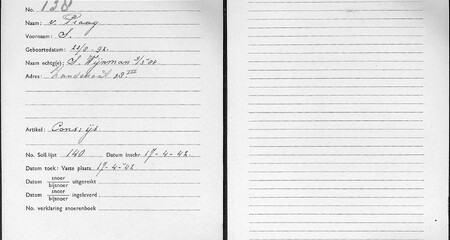 No. 138
Naam: v. Praag
Voornaam: S.
Geboortedatum: 22/9-92.
Naam echtg(e): S. Wijnman 9/5'04
Adres: Zandstraat 28 III
Artikel: Cons. ijs
No. Soll.lijst 140 Datum inschr. 17-4-42.
Datum toek: Vaste plaats. 17-4-'42
Datum snoer uitgereikt
bijsnoer
Datum snoer ingeleverd
bijsnoer
No. verklaring snoerenboek